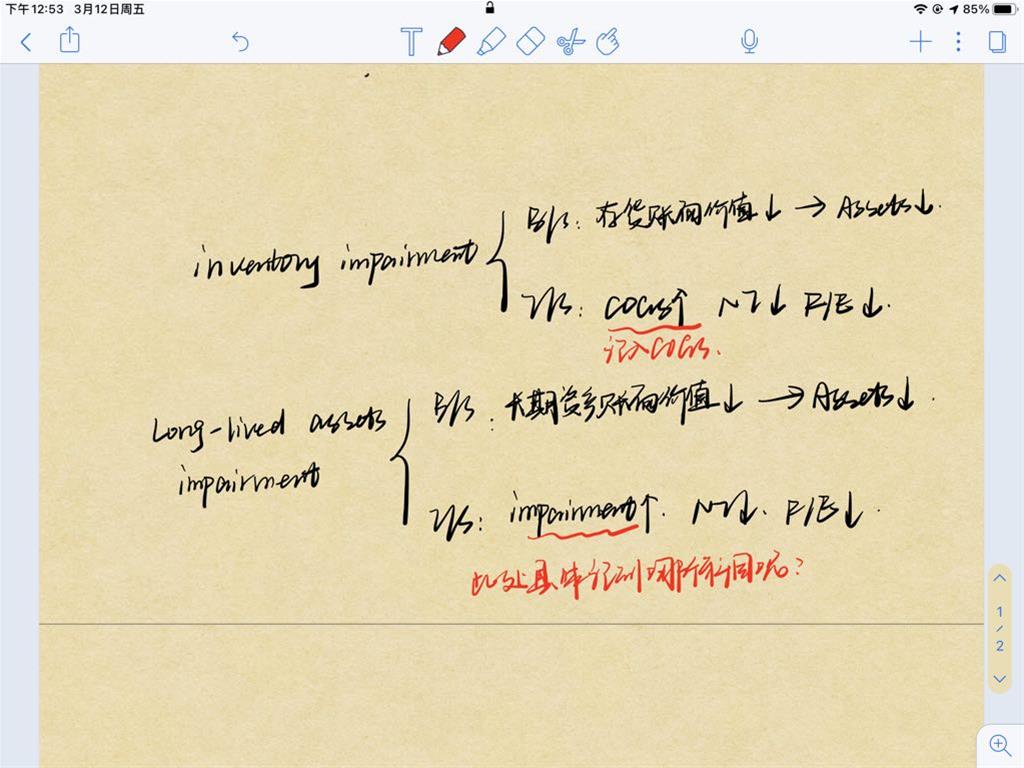 下午12:53 3月12日周五
85%
T
inventory impairment
B/S: 存货账面价值↓ → Assets↓.
I/S: COGS↑ NI↓ R/E↓.
记入COGS.
Long-lived assets
impairment
B/S: 长期资产账面价值↓ → Assets↓.
I/S: impairment↑. NI↓. R/E↓.
此处具体记到哪个科目呢?
1
/
2